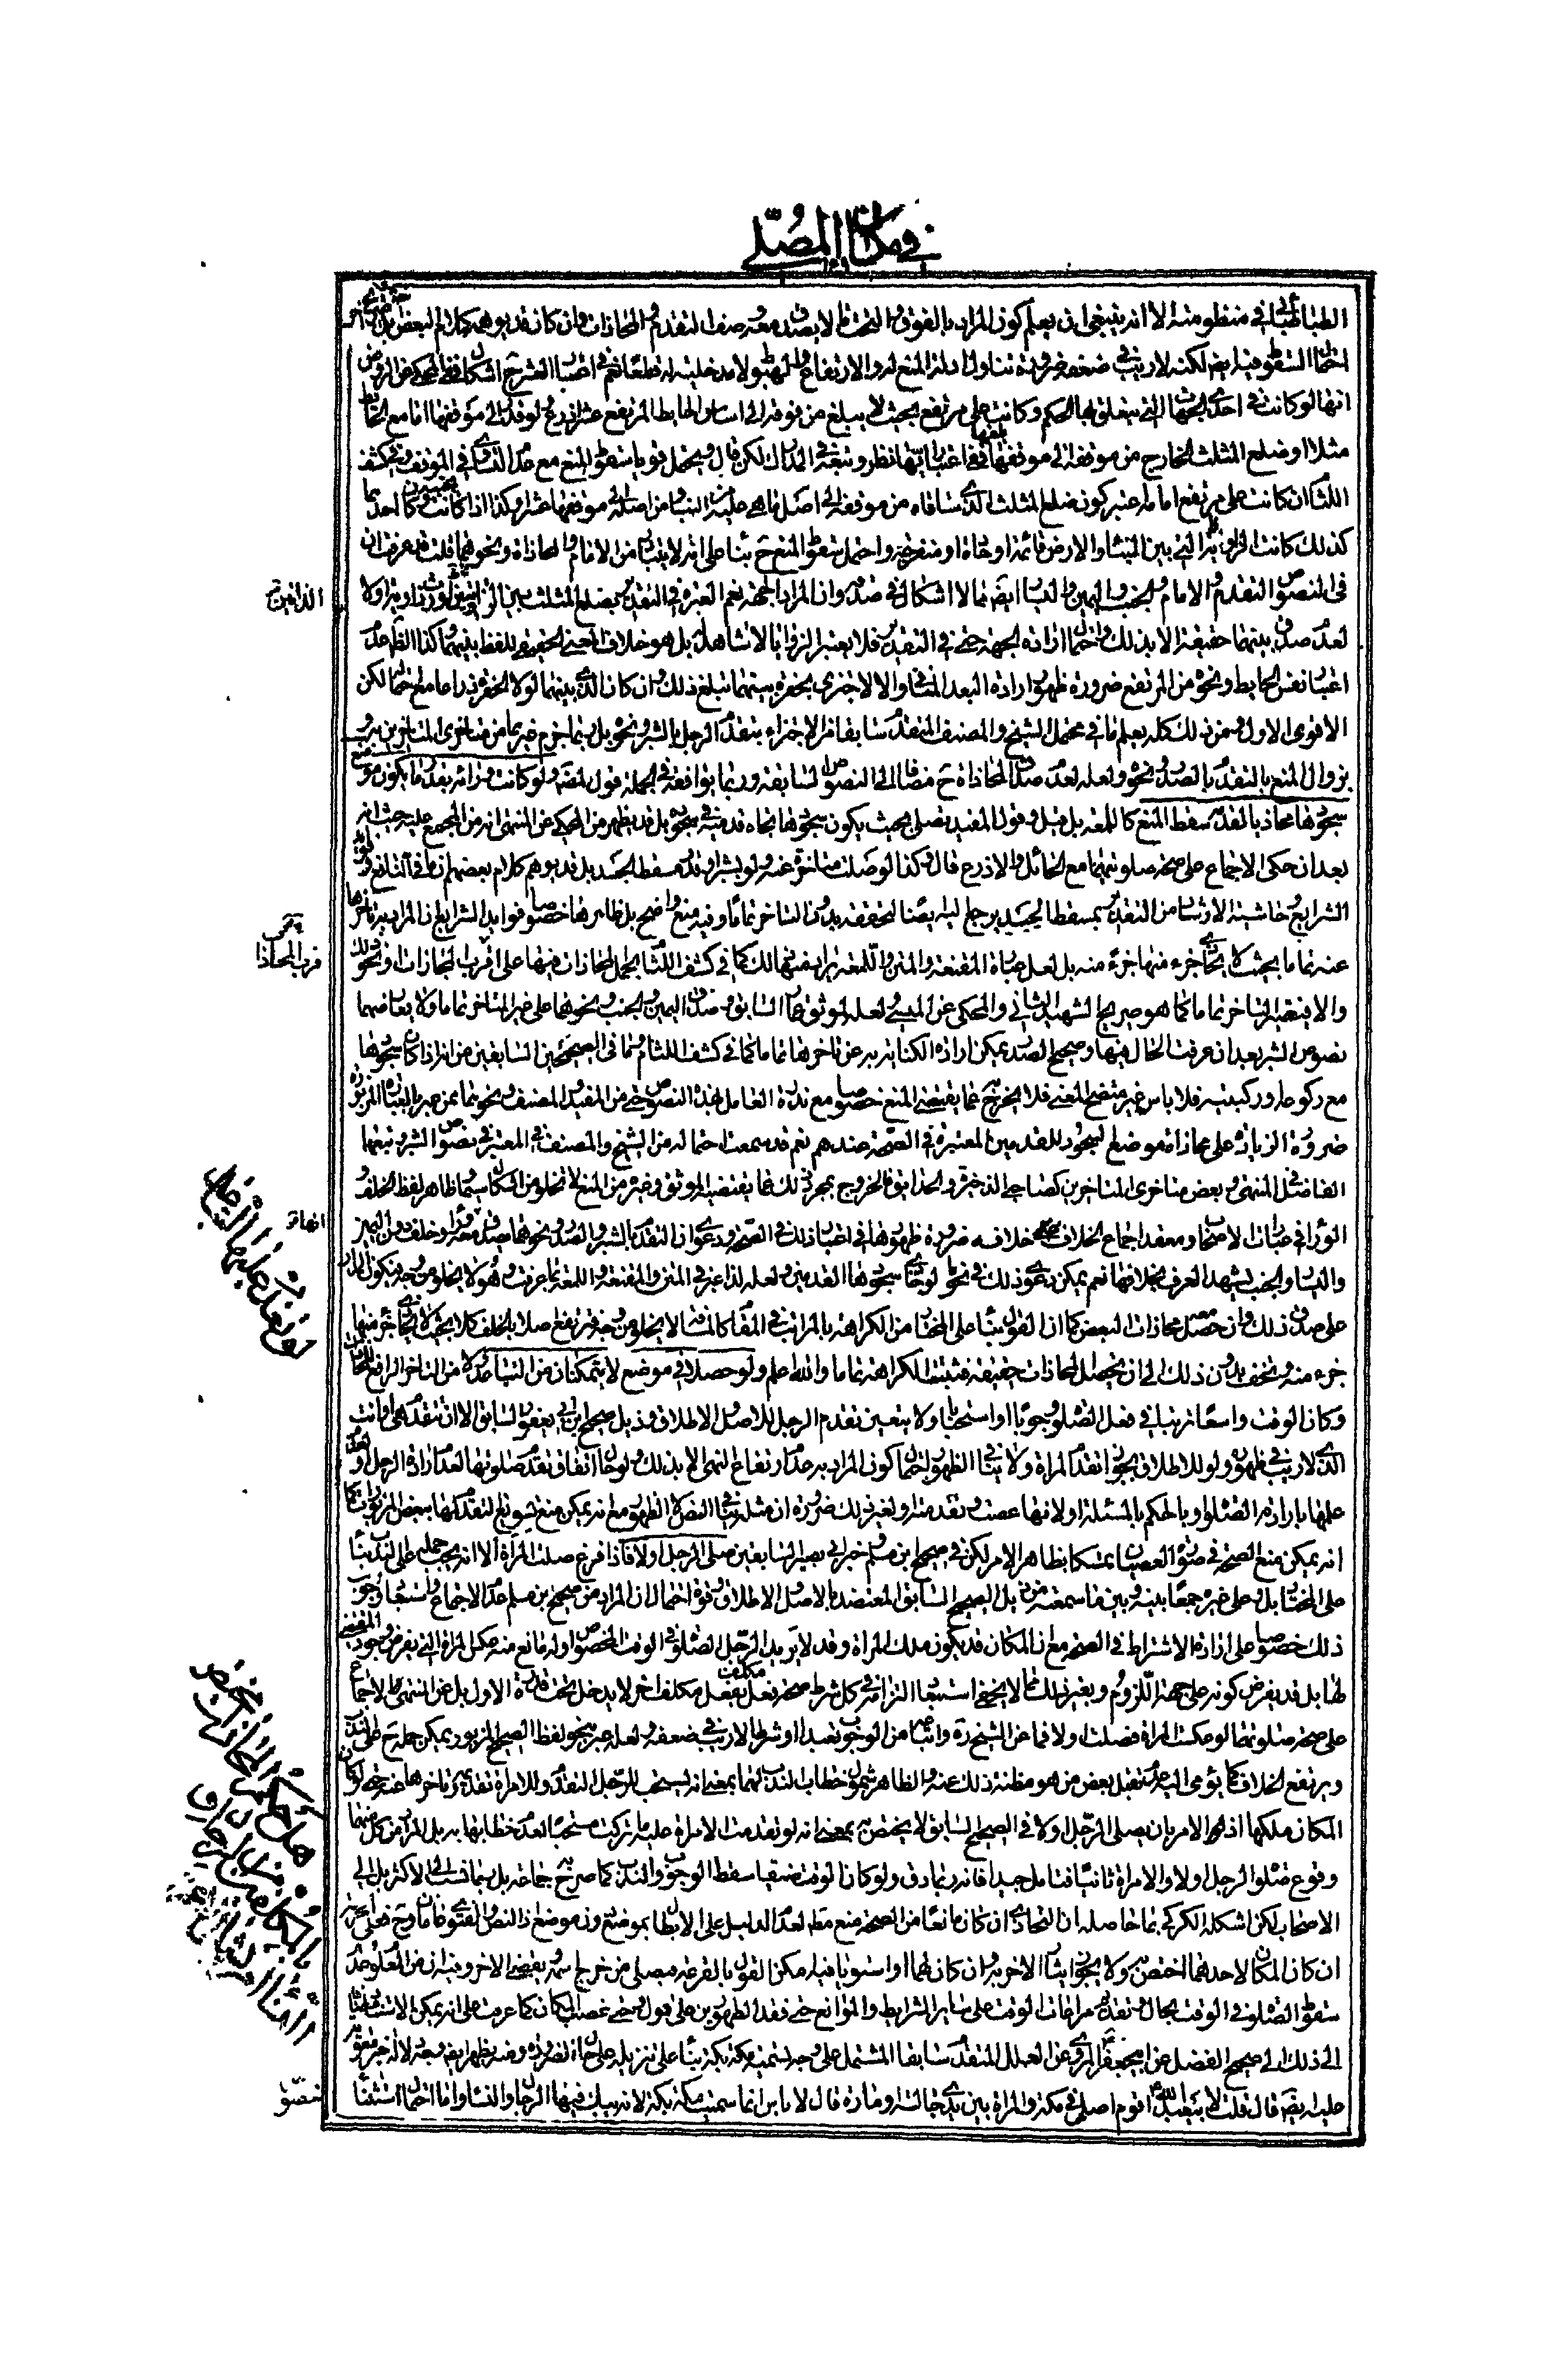 في مكان المصلي
الطباطبائي في منظومته الا انه ينبغي ان يعلم كون المراد بالفوق والتحت ما لا يصدق معه صف التقدم والمحاذات وان كان قد يوهم كلام البعض
احتمال السقوط فيه ايضا لكنه لا ريب في ضعفه ضرورة تناول ادلة المنع له والارتفاع والهبوط لا مدخلية له قطعا نعم في
انها لو كانت في احدى الجهات التي يتعلق بها الحكم وكانت على مرتفع بحيث لا يبلغ من موقفه الى اساس الحايط المرتفع عشر اذرع ولو قدر الى موقفها اما مع الحايط
مثلا او ضلع المثلث الخارج من موقفه الى موقفها ففي اعتبار ايها نظر وتبعه في المدارك لكن قال ويحتمل قويا سقوط المنع مع عدم التساوي في الموقف وفي كشف
اللثام ان كانت على مرتفع امامه اعتبر كون ضلع المثلث الذي ساقاه من موقفه الى اصل ما هي عليه من البناء ومن اصله الى موقفها عشرا وكذا اذا كانت
كذلك كانت الزاوية التي بين البناء والارض قائمة او حادة او منفرجة واحتمل سقوط المنع ح بناء على انه لا يتبادر من الامام والمحاذاة ونحوهما قلت قد عرفت ان
في النصوص التقدم والامام والجنب واليمين واليسار ايضا مما لا اشكال في صدقه وان المراد الجهة نعم العبرة في التقدير بضلع المثلث
لعدم صدق بينهما حقيقة الا بذلك واحتمال ارادة الجهة حتى في التقدير فلا يعتبر الزوايا لا شاهد له بل هو خلاف المعنى الحقيقي للفظ بينهما وكذا الظاهر عدم
اعتبار نفس الحايط ونحوه من المرتفع ضرورة ظهور ارادة البعد المنافي والا لاجتزى بحفرة بينهما تبلغ ذلك وان كان الذي بينهما لولا الحفرة ذراعا مع احتماله لكن
الاقوى الاول ومن ذلك كله يعلم ما في محتمل الشيخ والمصنف المتقدم سابقا من الاجتزاء بتقدم الرجل بالشبر ونحوه بل ربما جزم غيرهما من متاخري المتاخرين
بزوال المنع بالتقدم بالصدر ونحوه ولعله لعدم صدق المحاذاة ح مضافا الى النصوص السابقة وربما يوافقه في الجملة قول المصنف ولو كانت وراءه بقدر ما يكون موضع
سجودها محاذيا لقدمه سقط المنع كاللمعة بل قيل وقول المفيد تصلي بحيث يكون سجودها تجاه قدميه في سجوده بل قد يظهر من المحكي عن المنتهى انه من المجمع عليه حيث انه
بعد ان حكى الاجماع على صحة صلوتهما مع الحائل والاذرع قال وكذا لو صلت متاخرة عنه ولو بشبر او قدر مسقط الجسد بل قد يوهم كلام بعضهم
الشرايع وحاشية الارشاد من التقدير بمسقط الجسد يرجع اليه ايضا لتحققه بدون التاخر تماما وفيه منع واضح بل ظاهرها خصوصا فوايد الشرايع ان المراد به تاخرها
عنه تماما بحيث لا يحاذي جزء منها جزء منه بل لعل عبارة المقنعة والمتن واللمعة يراد منها ذلك كما في كشف اللثام لحمل المحاذات فيها على اقرب المحاذات او نحو ذلك
والا فيتعين التاخر تماما كما هو صريح الشهيد الثاني والمحكي عن الميسي ولعله لموثق عمار السابق وصدق اليمين والجنب ونحوهما على غير المتاخر تماما ولا يعارضهما
نصوص الشبر بعد ان عرفت الحال فيها وصحيح الصدر يمكن ارادة الكناية به عن تاخرها تماما كما في كشف اللثام وما في الصحيحين السابقين من انه اذا كان سجودها
مع ركوعه او ركبتيه فلا باس غير متضح المعنى فلا يخرج به عما يقتضي المنع خصوصا مع ندرة العامل بهذه النصوص حتى من المفيد والمصنف ونحوهما ممن عبر بالعبارة المزبورة
ضرورة الزيادة على محاذاة موضع السجود للقدمين المعتبرة في الصحة عندهم نعم قد سمعت احتماله من الشيخ والمصنف في المعتبر في نصوص الشبر وتبعهما
الفاضل في المنتهى وبعض متاخري المتاخرين كصاحبي الذخيرة والحدائق فالخروج بمجرد ذلك عما يقتضيه الموثق وغيره من المنع لا تخلو من اشكال سيما ظاهر لفظ الخلف و
الوراء في عبارات الاصحاب ومعقد اجماع الخلاف خلافه ضرورة ظهورها في اعتبار ذلك في الصحة ودعوى ان التقدم بالشبر والصدر ونحوهما يصدق معه وراء وخلف دون اليمين
واليسار والجنب يشهد العرف بخلافها نعم يمكن دعوى ذلك في نحو لو حاذى سجودها القدمين ولعله لذا عبر في المتن والمقنعة واللمعة بما عرفت وهو لا يخلو من وجه فيكون المدار
على صدق ذلك وان حصل محاذات البعض كما ان القول بناء على المختار من الكراهة بالمراتب في المقام كالمسافة لا يخلو من وجه فترتفع اصلا بالخلف كملا بحيث لا يحاذي جزء منها
جزء منه وتخف بدون ذلك الى ان يحصل المحاذات حقيقة فتثبت الكراهة تماما والله اعلم ولو حصلا في موضع لا يتمكنان من التباعد ولا من التاخر الرافع للمحاذاة
وكان الوقت واسعا ترتبا في فعل الصلوة وجوبا او استحبابا ولا يتعين تقدم الرجل للاصل والاطلاق وذيل صحيح ابن ابي يعفور السابق الا ان تتقدم هي او انت
الذي لا ريب في ظهوره ولو للاطلاق بجواز تقدم المراة ولا ينافي الظهور احتمال كون المراد به عدم ارتفاع النهي الا بذلك ولو حال اتفاق تقدم صلوتها لعدم ارادة الرجل او لعدم
علمها بارادته الصلوة او بالحكم بالمسئلة او لانها عصت وتقدمته او لغير ذلك ضرورة ان مثله ينافي النص لا الظهور مع انه يمكن منع تسويغ التقدم لها ببعض المزبورات كما
انه يمكن منع الصحة في صورة العصيان تمسكا بظاهر الامر لكن في صحيح ابن مسلم وخبر ابي بصير السابقين صلى الرجل اولا فاذا فرغ صلت المراة الا انه يجب حمله على الندب بناء
على المختار بل وعلى غيره جمعا بينه وبين ما سمعته من ذيل الصحيح السابق المعتضد بالاصل والاطلاق وقوة احتمال ان المراد من صحيح بن مسلم عدم الاجتماع واستبعاد وجوب
ذلك خصوصا على ارادة الاشتراط في الصحة مع ان المكان قد يكون ملك المراة وقد لا يريد الرجل الصلوة في الوقت المخصوص او له مانع منه عكس المراة التي يفرض وجود المقتضي
لها بل قد يفرض كونه على جهة اللزوم وبغير ذلك مما لا يخفى استبعاد التزامه في كل شرط صحة فعل مكلف بفعل مكلف اخر لا يدخل تحت قدرة الاول بل عن المنتهى الاجماع
على صحة صلوتهما لو عكست المراة فصلت اولا فما عن الشيخ ره واتباعه من الوجوب تعبدا او شرطا لا ريب في ضعفه ولعله عبر بنحو لفظ الصحيح المزبور ويمكن حمله ح على الندب
ويرتفع الخلاف كما يؤمي اليه عدم نقل بعض من هو مظنة ذلك عنه والظاهر شمول خطاب الندب لهما بمعنى انه يستحب للرجل التقدم وللامراة تقديمه وتاخرها عنه حتى لو كان
المكان ملكها اذ الامر بان يصلي الرجل اولا في الصحيح السابق لا يختص به بمعنى انه لو تقدمت الامراة عليه ما تركت مستحبا لعدم خطابها به بل المراد من كل منهما
وقوع صلوة الرجل اولا والامراة ثانيا فتامل جيدا فانه ربما دق ولو كان الوقت ضيقا سقط الوجوب والندب كما صرح به جماعة بل ربما نسب الى الاكثر بل الى
الاصحاب لكن اشكله الكركي بما حاصله ان التحاذي ان كان مانعا من الصحة منع مطلقا لعدم الدليل على الابطال بموضع دون موضع اذ النص والفتوى عامان وح
ان كان المكان لاحدهما اختص به ولا يجوز ايثار الاخر به وان كان لهما او استويا فيه امكن القول بالقرعة فيصلي من خرج اسمه ويقضي الاخر وفيه ان من المعلوم عدم
سقوط الصلوة في الوقت بحال وتقدم مراعات الوقت على ساير الشرايط والموانع حتى فقد الطهورين على قول وحتى غصب المكان كما عرفت على انه يمكن الاستناد
الى ذلك الى صحيح الفضل عن ابي جعفر المروي عن العلل المتقدم سابقا المشتمل على وجه تسمية مكة بكة بناء على تنزيله على حال الضرورة
عليه ايضا قال قلت لابي عبد الله اقوم اصلي في مكة والمراة بين يدي جالسة او مارة قال لا باس انما سميت مكة بكة لانه يبك فيها الرجال والنساء واما احتمال استثناء
قرب المحاذا
انها
لو تعذر التباعد
هل الحكم